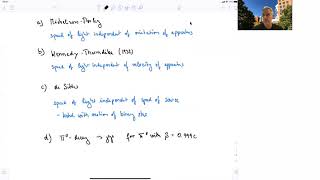 a) Michelson-Morley
speed of light independent of orientation of apparatus
b) Kennedy-Thorndike (1932)
speed of light independent of velocity of apparatus
c) de Sitter
speed of light independent of speed of source
- tested with motion of binary star
d) π⁰-decay → γγ for π⁰ with β = 0.999c